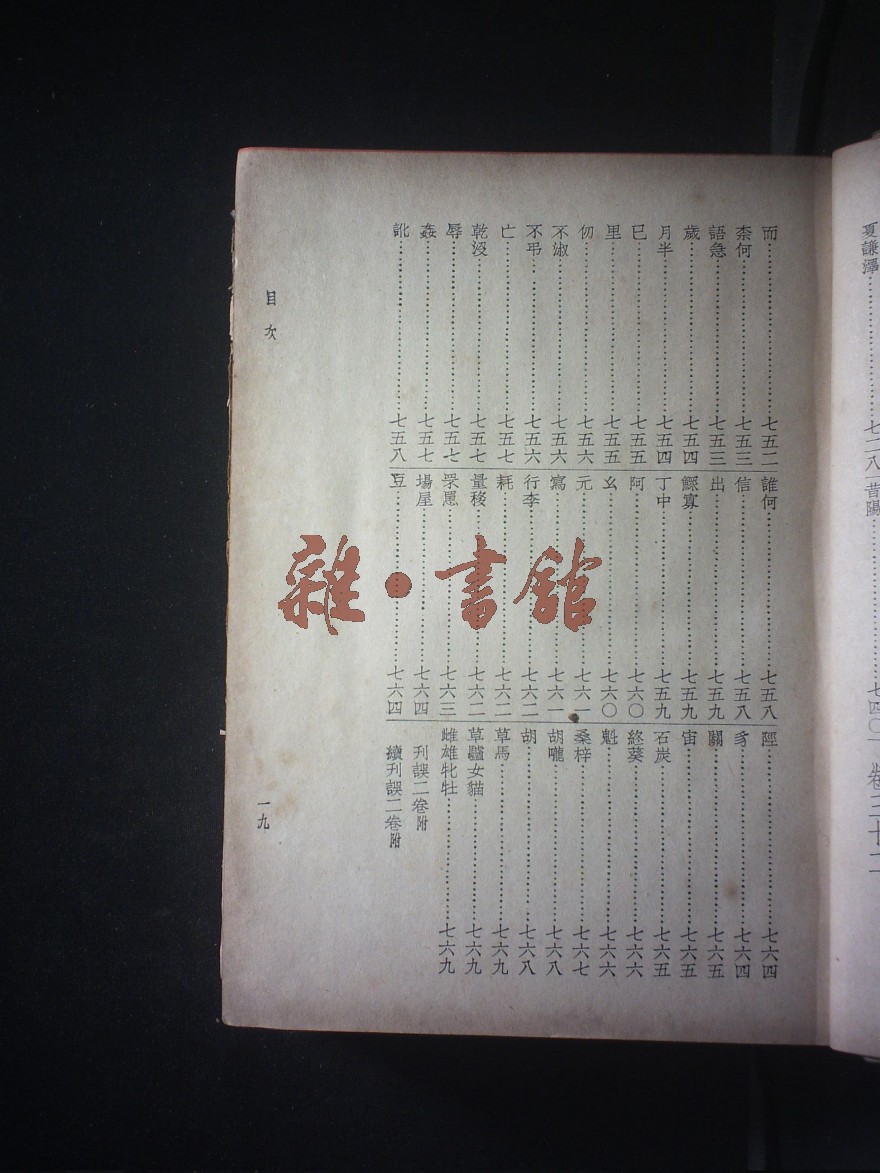 夏謙澤……七二八
昔陽……七四〇
卷三十二
而……七五二
奈何……七五三
語急……七五三
歲……七五四
月半……七五四
巳……七五五
里……七五五
仞……七五六
不淑……七五六
不弔……七五六
亡……七五七
乾沒……七五七
辱……七五七
姦……七五七
訛……七五八
誰何……七五八
信……七五八
出……七五九
鰥寡……七五九
丁中……七五九
阿……七六〇
幺……七六〇
元……七六一
寫……七六一
行李……七六二
耗……七六二
量移……七六二
罘罳……七六三
場屋……七六四
豆……七六四
陘……七六四
豸……七六四
關……七六五
宙……七六五
石炭……七六五
終葵……七六六
魁……七六六
桑梓……七六七
胡嚨……七六八
胡……七六八
草馬……七六九
草驢女貓……七六九
雌雄牝牡……七六九
刊誤二卷附
續刊誤二卷附
目次
一九
雜·書館